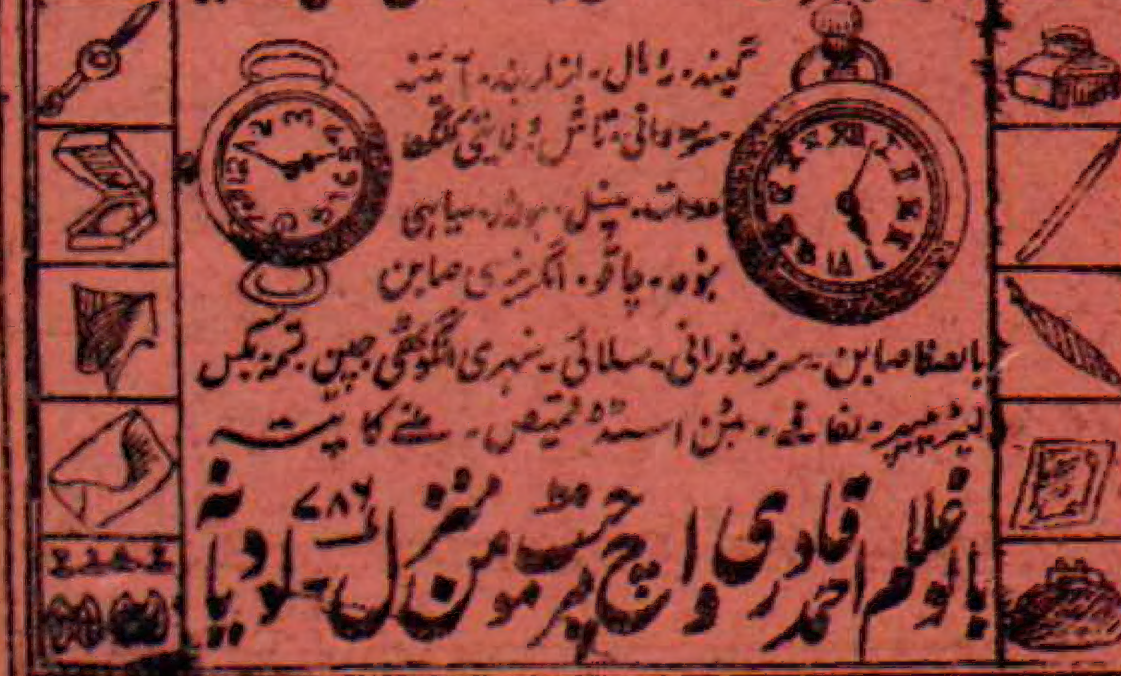 گیند۔ رومال۔ ازاربند۔ آئینہ
سرمہ دانی۔ تاش ولایتی کنگھا
دوات۔ پنسل۔ ہولڈر۔ سیاہی
بٹوہ۔ چاقو۔ انگریزی صابن
بالصفا صابن۔ سرمہ نورانی۔ سلائی۔ سنہری انگوٹھی
لیٹرپیپر۔ لفافے۔ بٹن اسٹڈ قمیص۔ ملنے کا پتہ
بابو غلام احمد قادری واچ مرچنٹ مومن منزل ۷۸۶ لودیانہ